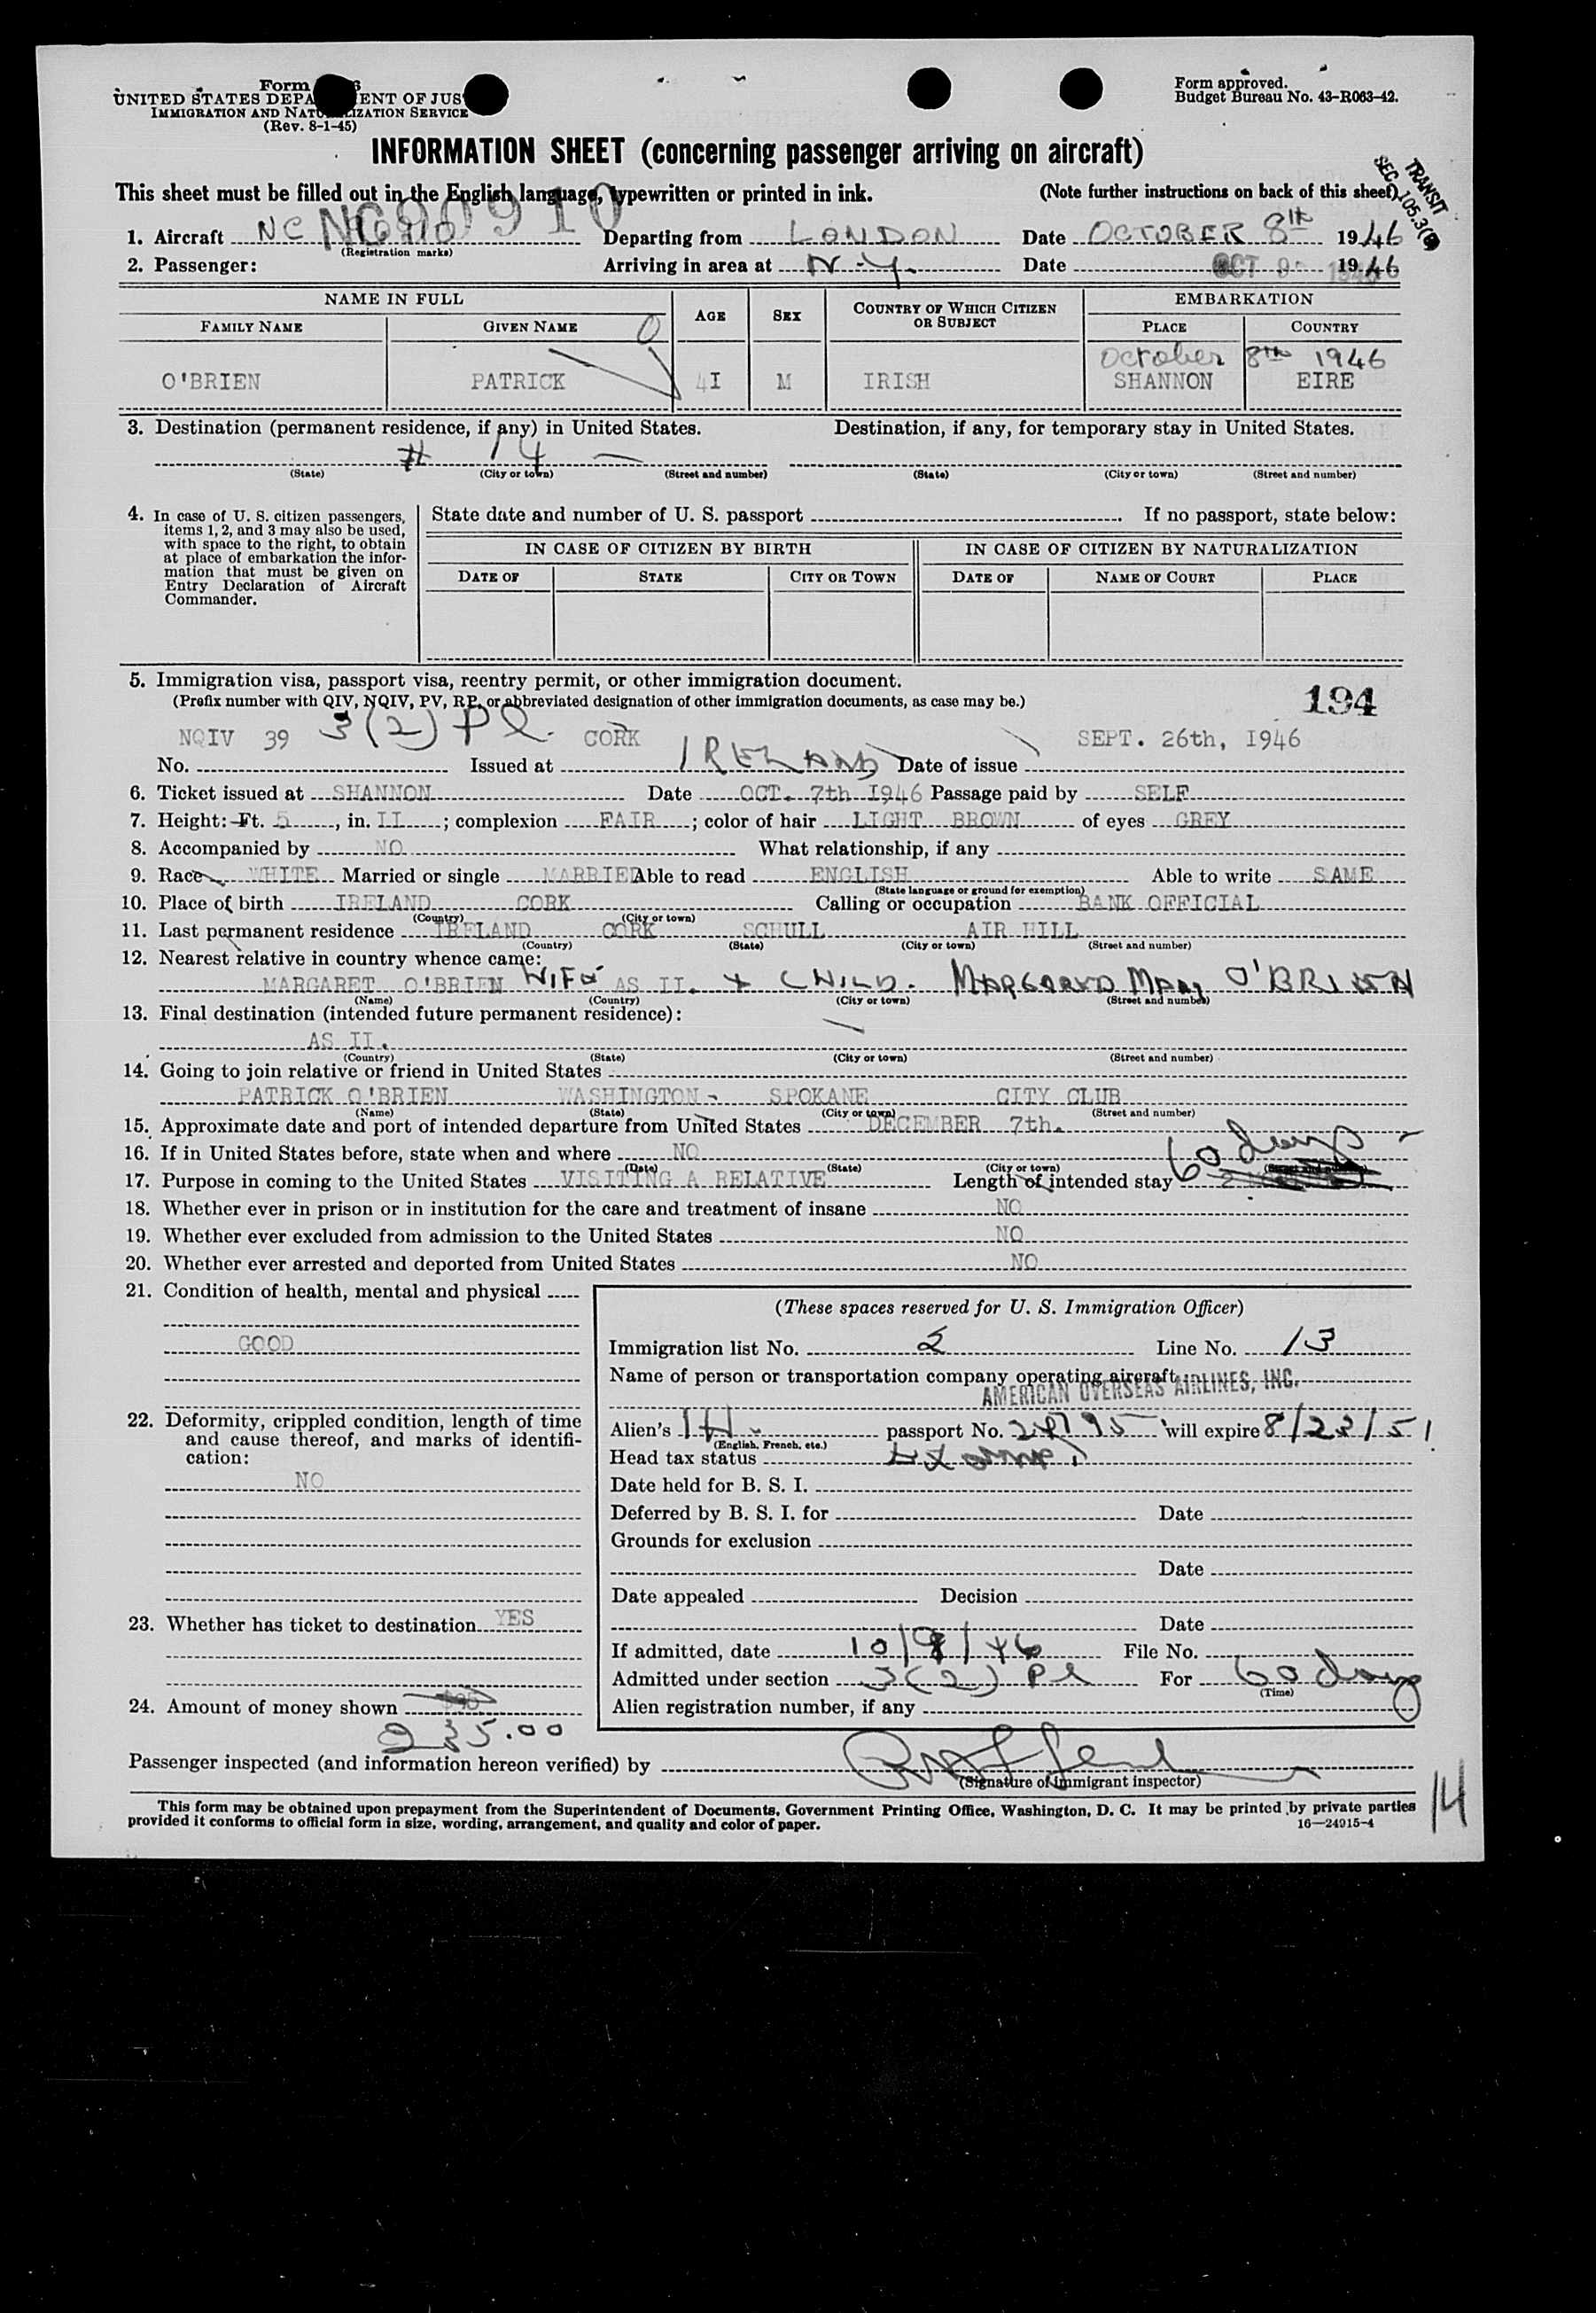 Form
UNITED STATES DEPA ENT OF JUS
IMMIGRATION AND NATURALIZATION SERVICE
(Rev. 8-1-45)
Form approved.
Budget Bureau No. 43-R063-42.
INFORMATION SHEET (concerning passenger arriving on aircraft)
This sheet must be filled out in the English language, typewritten or printed in ink. (Note further instructions on back of this sheet)
TRANSIT
SEC. 105.3
1. Aircraft NC NC90910 Departing from LONDON Date OCTOBER 8th 1946
(Registration marks)
2. Passenger: Arriving in area at N.Y. Date OCT 9 1946
NAME IN FULL AGE SEX COUNTRY OF WHICH CITIZEN OR SUBJECT EMBARKATION
FAMILY NAME GIVEN NAME PLACE COUNTRY
October 8th 1946
O'BRIEN PATRICK 4I M IRISH SHANNON EIRE
3. Destination (permanent residence, if any) in United States. Destination, if any, for temporary stay in United States.
# 14 —
(State) (City or town) (Street and number) (State) (City or town) (Street and number)
4. In case of U. S. citizen passengers, items 1, 2, and 3 may also be used, with space to the right, to obtain at place of embarkation the information that must be given on Entry Declaration of Aircraft Commander.
State date and number of U. S. passport . If no passport, state below:
IN CASE OF CITIZEN BY BIRTH IN CASE OF CITIZEN BY NATURALIZATION
DATE OF STATE CITY OR TOWN DATE OF NAME OF COURT PLACE
5. Immigration visa, passport visa, reentry permit, or other immigration document.
(Prefix number with QIV, NQIV, PV, RP, or abbreviated designation of other immigration documents, as case may be.)
194
NQIV 39 3(2) Pl. CORK IRELAND SEPT. 26th, I946
No. Issued at Date of issue
6. Ticket issued at SHANNON Date OCT. 7th I946 Passage paid by SELF
7. Height: Ft. 5, in. II; complexion FAIR; color of hair LIGHT BROWN of eyes GREY
8. Accompanied by NO What relationship, if any
9. Race WHITE Married or single MARRIED Able to read ENGLISH Able to write SAME
(State language or ground for exemption)
10. Place of birth IRELAND CORK Calling or occupation BANK OFFICIAL
(Country) (City or town)
11. Last permanent residence IRELAND CORK SCHULL AIR HILL
(Country) (State) (City or town) (Street and number)
12. Nearest relative in country whence came:
MARGARET O'BRIEN WIFE AS II. + CHILD. MARGARET MARY O'BRIEN
(Name) (Country) (City or town) (Street and number)
13. Final destination (intended future permanent residence):
AS II.
(Country) (State) (City or town) (Street and number)
14. Going to join relative or friend in United States
PATRICK O'BRIEN WASHINGTON - SPOKANE CITY CLUB
(Name) (State) (City or town) (Street and number)
15. Approximate date and port of intended departure from United States DECEMBER 7th.
16. If in United States before, state when and where NO
(Date) (State) (City or town)
17. Purpose in coming to the United States VISITING A RELATIVE Length of intended stay 60 days
18. Whether ever in prison or in institution for the care and treatment of insane NO
19. Whether ever excluded from admission to the United States NO
20. Whether ever arrested and deported from United States NO
21. Condition of health, mental and physical
GOOD
22. Deformity, crippled condition, length of time and cause thereof, and marks of identification:
NO
23. Whether has ticket to destination YES
24. Amount of money shown
235.00
(These spaces reserved for U. S. Immigration Officer)
Immigration list No. 2 Line No. 13
Name of person or transportation company operating aircraft
AMERICAN OVERSEAS AIRLINES, INC.
Alien's passport No. will expire 8/23/51
(English, French, etc.)
Head tax status Exempt
Date held for B. S. I.
Deferred by B. S. I. for Date
Grounds for exclusion
Date
Date appealed Decision
Date
If admitted, date 10/9/46 File No.
Admitted under section 3(2) Pl For 60 days
(Time)
Alien registration number, if any
Passenger inspected (and information hereon verified) by
(Signature of immigrant inspector)
14
This form may be obtained upon prepayment from the Superintendent of Documents, Government Printing Office, Washington, D. C. It may be printed by private parties
provided it conforms to official form in size, wording, arrangement, and quality and color of paper. 16—24915-4